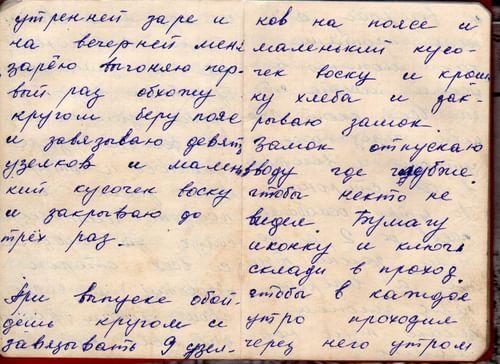 утренней заре и
на вечерней мень
зарёю выгоняю пер-
вый раз обхожу
кругом беру пояс
и завязываю девять
узелков и малень
кий кусочек воску
и закрываю до
трёх раз.
При выпуске обой-
дёшь кругом и
завязывать 9 узел-
ков на поясе и
маленький кусо-
чек воску и крош
ку хлеба и зак-
рываю замок.
Замок отпускаю
вводу где глубже
чтобы некто не
видел. Бумагу
иконку и ключ
склади в проход.
чтобы в каждое
утро проходил
через него утром